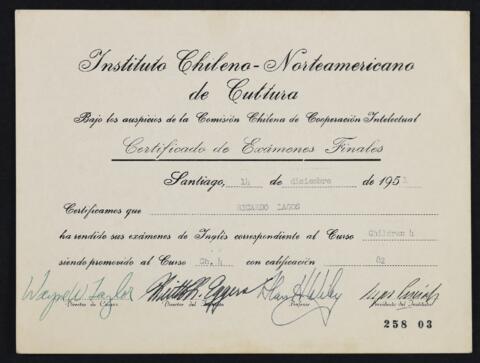 Instituto Chileno-Norteamericano
de Cultura
Bajo los auspicios de la Comisión Chilena de Cooperación Intelectual
Certificado de Exámenes Finales
Santiago, 14 de diciembre de 195
Certificamos que RICARDO LAGOS
ha rendido sus exámenes de Inglés correspondiente al Curso Children 4
siendo promovido al Curso Co. 4 con calificación 82
Wayne W. Taylor
Director de Cursos Director del Instituto Profesor Presidente del Instituto
258 03